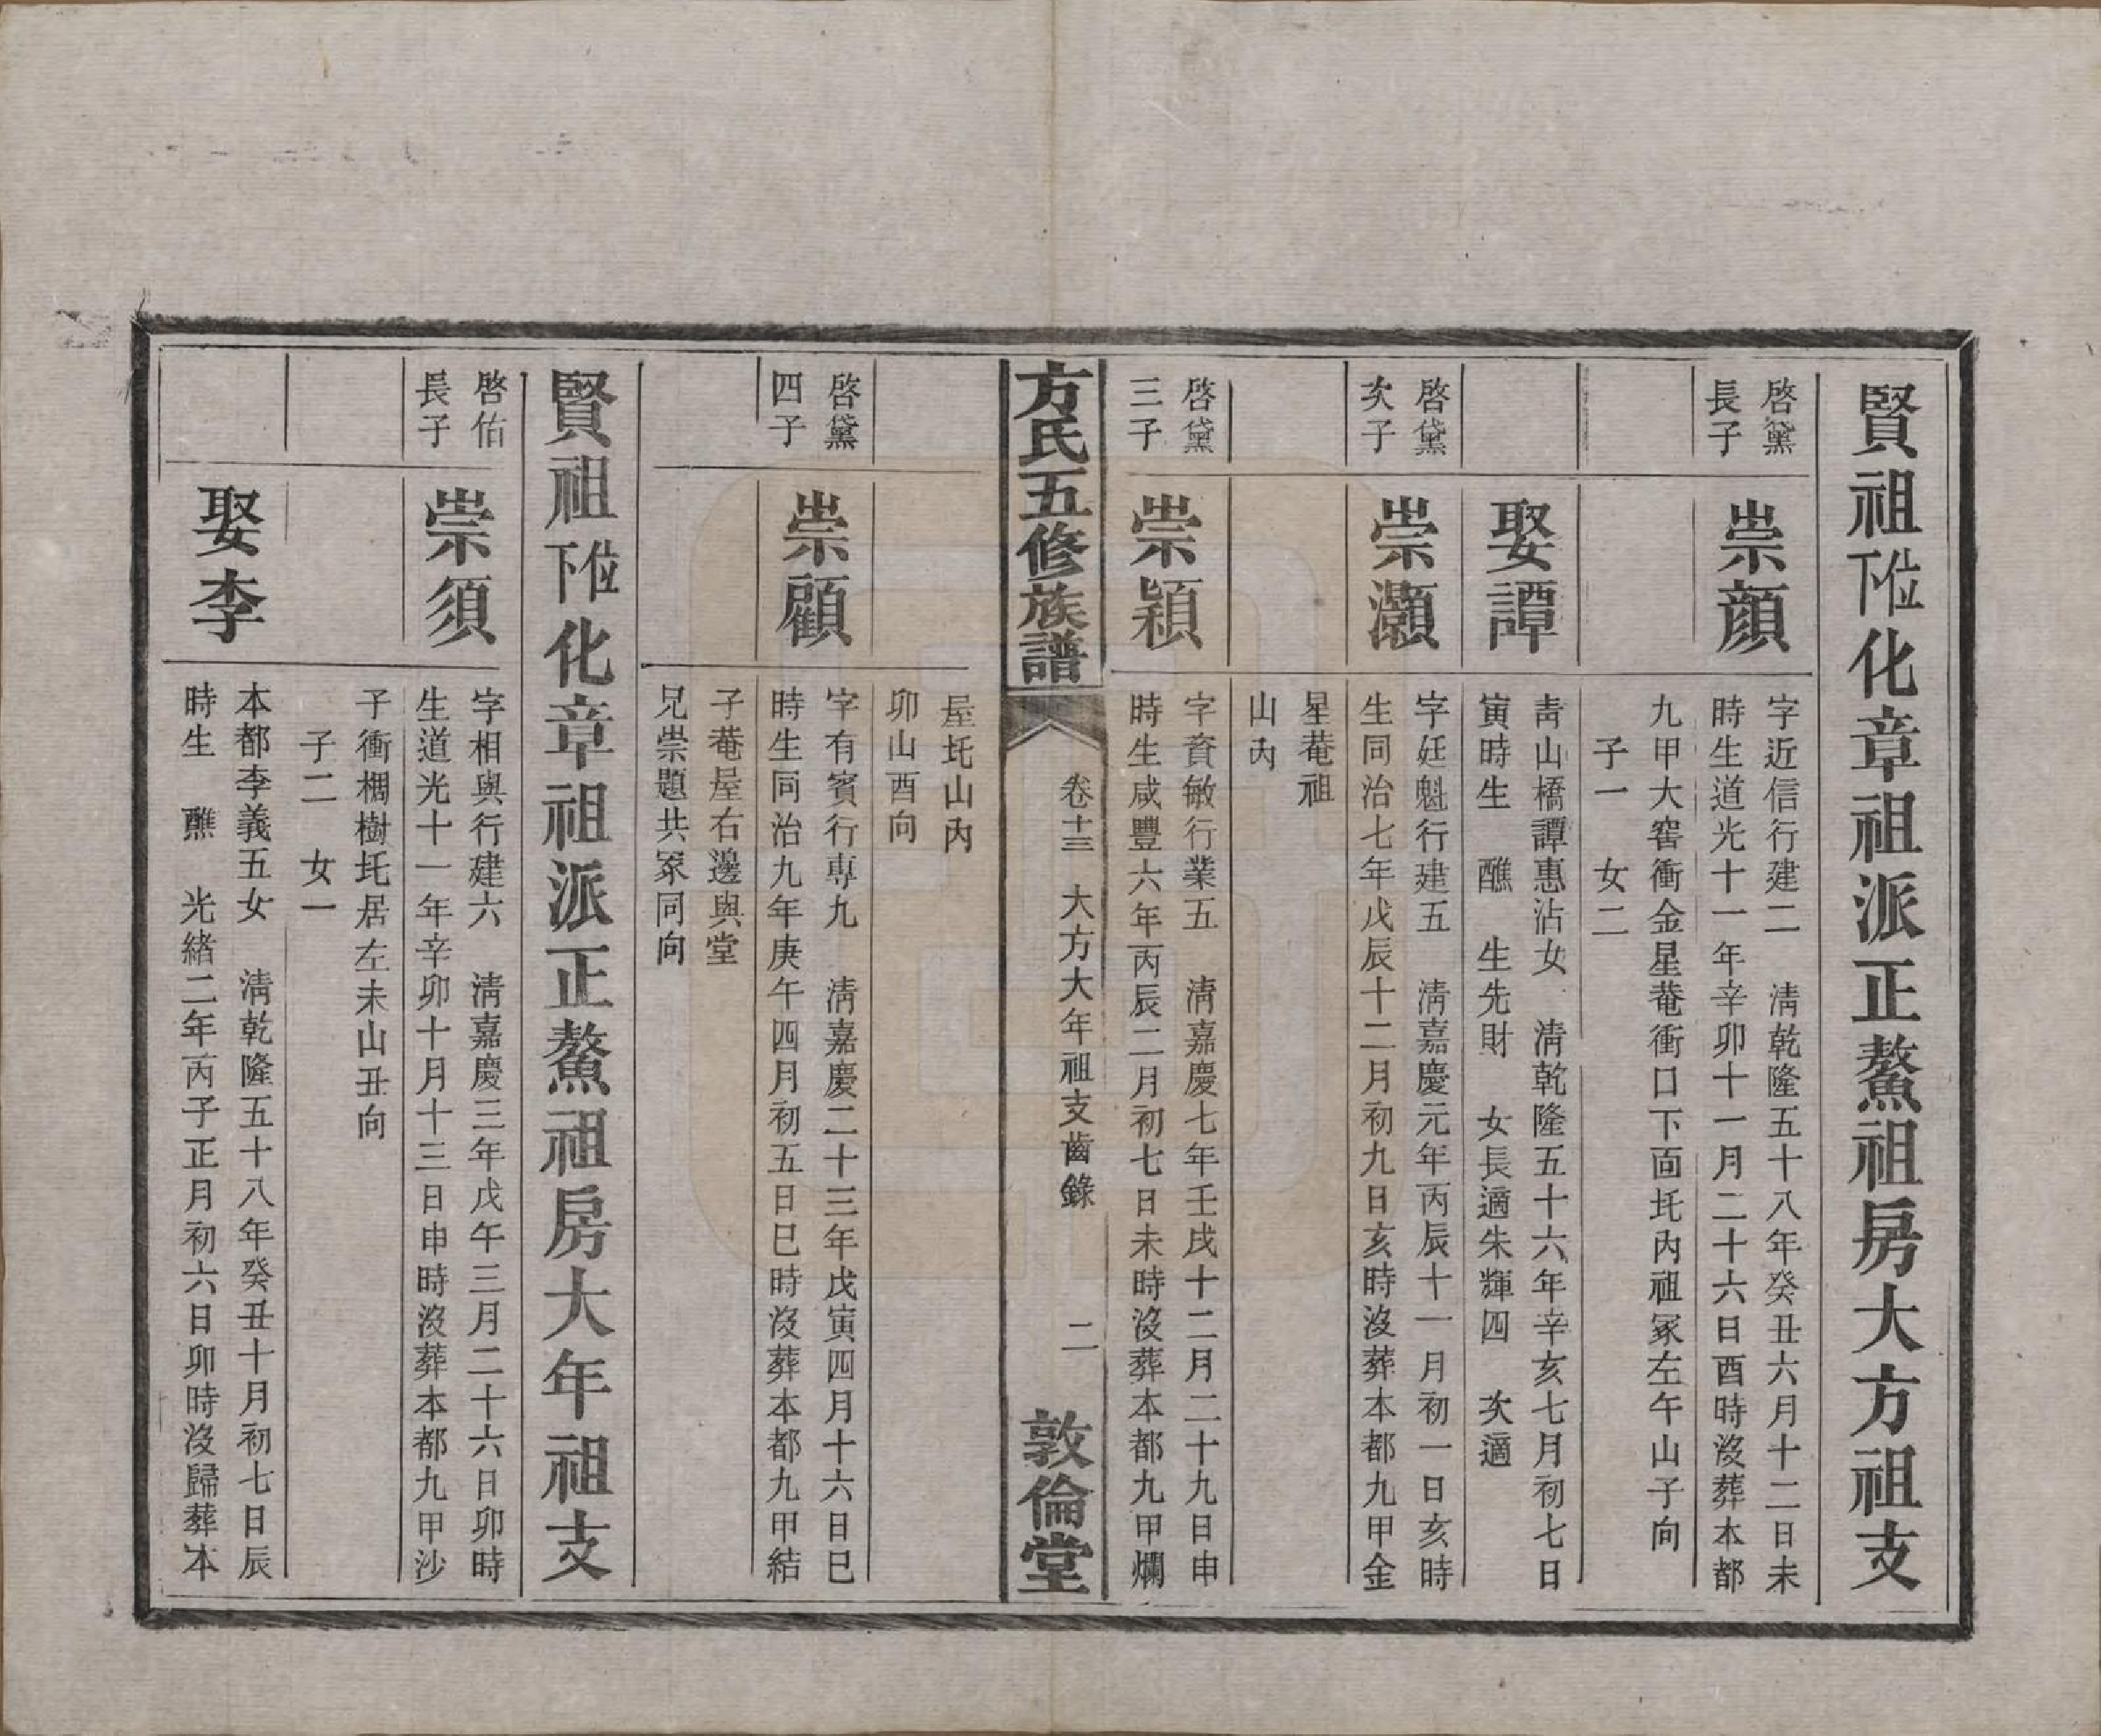 賢祖位下化章祖派正鰲祖房大方祖支
啓黛
長子
崇顔
字近信行建二 淸乾隆五十八年癸丑六月十二日未
時生道光十一年辛卯十一月二十六日酉時沒葬本都
九甲大窖衝金星菴衝口下面圫內祖冢左午山子向
子一 女二
娶譚
靑山橋譚惠沾女 淸乾隆五十六年辛亥七月初七日
寅時生 醮 生先財 女長適朱輝四 次適
啓黛
次子
崇灝
字廷魁行建五 淸嘉慶元年丙辰十一月初一日亥時
生同治七年戊辰十二月初九日亥時沒葬本都九甲金
星菴祖
山內
啓黛
三子
崇穎
字資敏行業五 淸嘉慶七年壬戌十二月二十九日申
時生咸豐六年丙辰二月初七日未時沒葬本都九甲爛
方氏五修族譜
卷十三 大方大年祖支齒錄
二
敦倫堂
屋圫山內
卯山酉向
啓黛
四子
崇顧
字有賓行専九 淸嘉慶二十三年戊寅四月十六日巳
時生同治九年庚午四月初五日巳時沒葬本都九甲結
子菴屋右邊與堂
兄崇題共冢同向
賢祖位下化章祖派正鰲祖房大年祖支
啓佑
長子
崇須
字相與行建六 淸嘉慶三年戊午三月二十六日卯時
生道光十一年辛卯十月十三日申時沒葬本都九甲沙
子衝椆樹圫居左未山丑向
子二 女一
娶李
本都李義五女 淸乾隆五十八年癸丑十月初七日辰
時生 醮 光緒二年丙子正月初六日卯時沒歸葬本